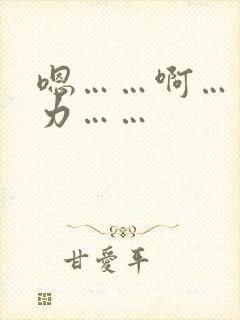 嗯……啊…
力……
甘愛平